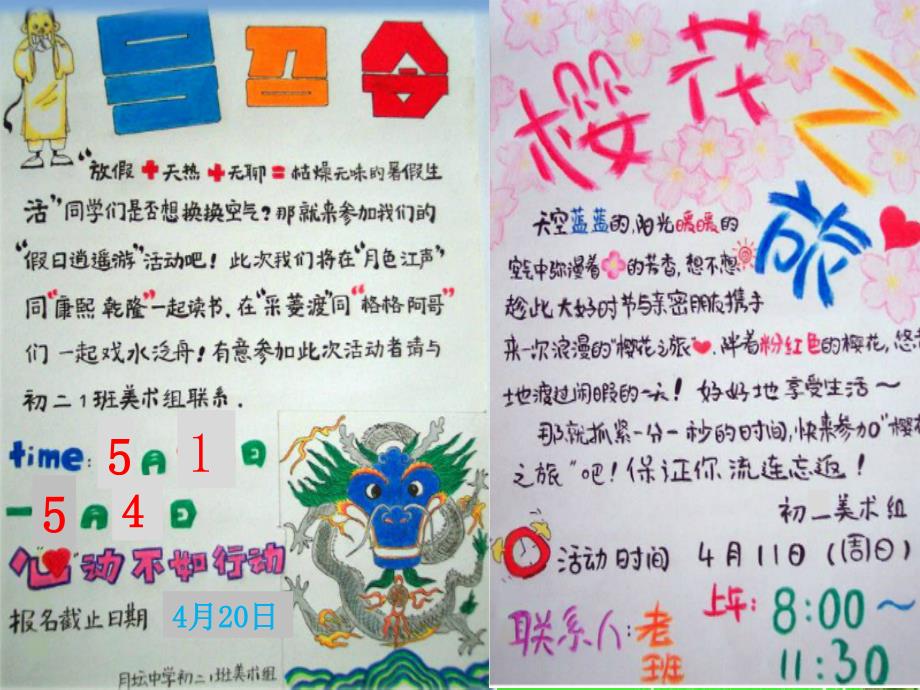 号召令
“放假+天热+无聊=枯燥无味的暑假生
活”同学们是否想换换空气？那就来参加我们的
“假日逍遥游”活动吧！此次我们将在“月色江声”
同“康熙乾隆”一起读书、在“采菱渡”同“格格阿哥”
们一起戏水泛舟！有意参加此次活动者请与
初二1班美术组联系.
time: 5月1日
一5月4日
“心”动不如行动
报名截止日期 4月20日
月坛中学初二1班美术组
樱花之
旅
天空蓝蓝的,阳光暖暖的
空气中弥漫着 的芳香,想不想
趁此大好时节与亲密朋友携手
来一次浪漫的“樱花之旅”.伴着粉红色的樱花,悠
地渡过闲暇的一天！好好地享受生活～
那就抓紧一分一秒的时间,快来参加“樱
之旅”吧！保证你流连忘返！
初一美术组
活动时间 4月11日(周日)
上午: 8:00～
11:30
联系人:老
班